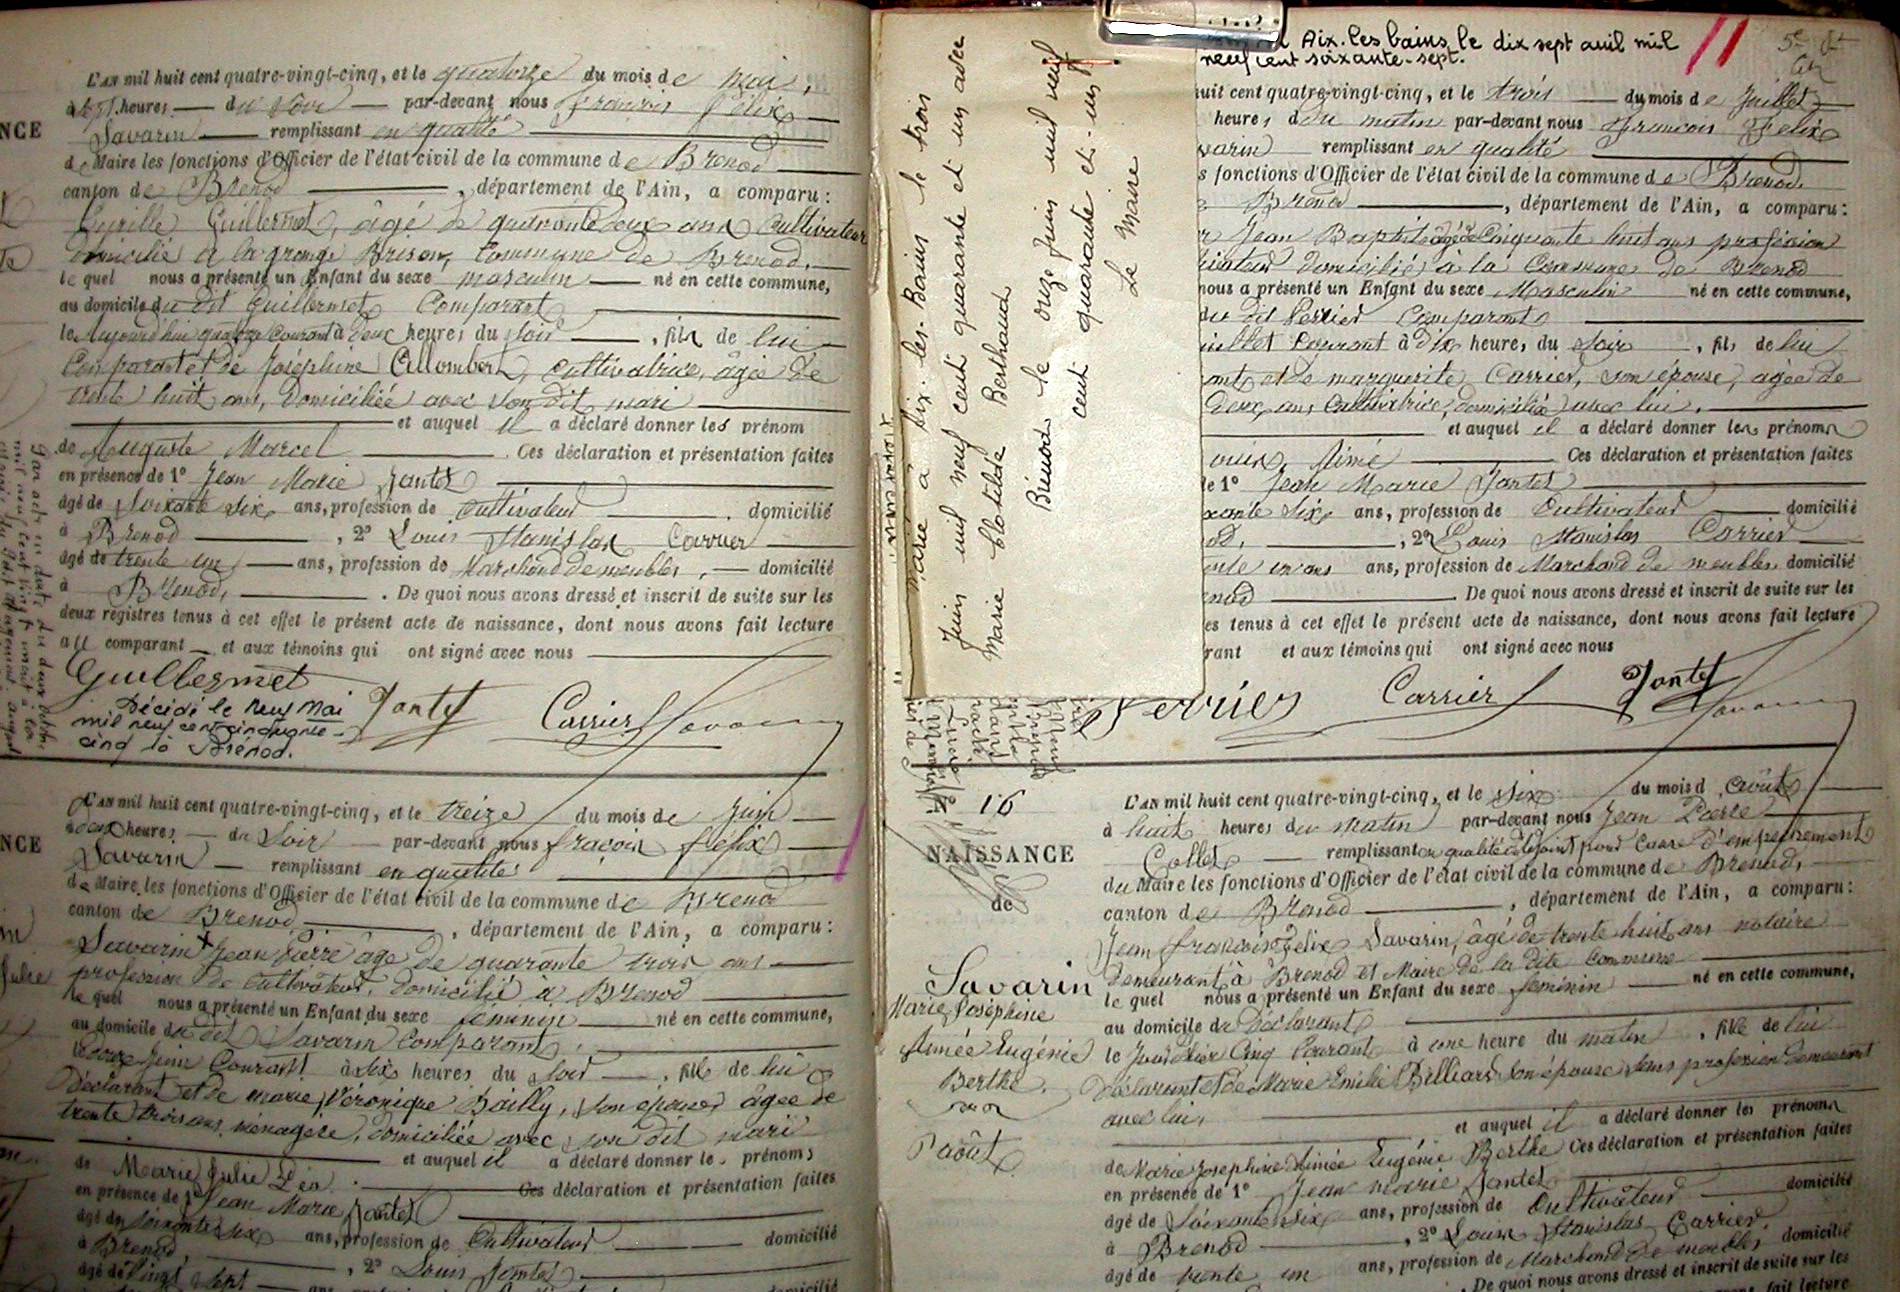 L'AN mil huit cent quatre-vingt-cinq, et le quatorze du mois de mai,
à sept heures du soir par-devant nous François Félix
Savarin remplissant en qualité
de Maire les fonctions d'Officier de l'état civil de la commune de Brenod
canton de Brenod, département de l'Ain, a comparu:
Cyrille Guillermet, âgé de quarante deux ans Cultivateur
domicilié à la grange Brison, Commune de Brenod.
le quel nous a présenté un Enfant du sexe masculin né en cette commune,
au domicile du dit Guillermet Comparant
le Aujourd'hui quatorze Courant à deux heures du soir, fils de lui
Comparant et de Joséphine Allombert, cultivatrice, âgée de
trente huit ans, domiciliée avec son dit mari
et auquel il a déclaré donner les prénom
de Auguste Marcel. Ces déclaration et présentation faites
en présence de 1º Jean Marie Jantet
âgé de Soixante six ans, profession de Cultivateur, domicilié
à Brenod, 2º Louis Stanislas Carrier
âgé de trente un ans, profession de Marchand de meubles, domicilié
à Brenod. De quoi nous avons dressé et inscrit de suite sur les
deux registres tenus à cet effet le présent acte de naissance, dont nous avons fait lecture
au comparant et aux témoins qui ont signé avec nous
Guillermet
Jantet Carrier Savarin
Décédé le neuf Mai
mil neuf cent cinquante-
cinq à Brénod.
NCE
L'AN mil huit cent quatre-vingt-cinq, et le treize du mois de Juin
à deux heures du Soir par-devant nous fraçois félix
Savarin remplissant en qualité
de Maire les fonctions d'Officier de l'état civil de la commune de Brenod
canton de Brenod, département de l'Ain, a comparu:
Savarin Jean Pierre âgé de quarante trois ans
profession de cultivateur, domicilié à Brenod
le quel nous a présenté un Enfant du sexe feminin né en cette commune,
au domicile du dit Savarin Comparant
le douze Juin Courant à six heures du Soir, fille de lui
Déclarant et de marie Véronique Bailly, son epouse âgée de
trente trois ans, ménagère, domiciliée avec son dit mari
et auquel il a déclaré donner le prénoms
de Marie Julie Léa. Ces déclaration et présentation faites
en présence de 1º Jean Marie Jantet
âgé de soixante six ans, profession de Cultivateur domicilié
à Brenod, 2º Louis Jantet
âgé de vingt sept
NCE
Julie
Marié à Aix-les-Bains le trois
Juin mil neuf cent quarante et un avec
Marie Clotilde Berthaud
Brénod le onze Juin mil neuf
cent quarante et un
Le Maire
Aix-les bains le dix sept avril mil
neuf cent soixante-sept.
huit cent quatre-vingt-cinq, et le trois du mois de Juillet
heures du matin par-devant nous François Felix
varin remplissant en qualité
s fonctions d'Officier de l'état civil de la commune de Brenod.
Brenod, département de l'Ain, a comparu:
Jean Baptiste âgé de Cinquante huit ans profession
domicilié à la Commune de Brenod
nous a présenté un Enfant du sexe Masculin né en cette commune,
du dit Perrier Comparant
uillet Courant à dix heures du soir, fils de lui
ant et de marguerite Carrier, son épouse, agée de
deux ans Cultivatrice, domiciliée avec lui.
et auquel il a déclaré donner les prénoms
ouis Aimé Ces déclaration et présentation faites
de 1º Jean Marie Jantet
xante six ans, profession de Cultivateur domicilié
od, 2º Louis Stanislas Carrier
ente un ans ans, profession de Marchand de meubles domicilié
enod. De quoi nous avons dressé et inscrit de suite sur les
es tenus à cet effet le présent acte de naissance, dont nous avons fait lecture
rant et aux témoins qui ont signé avec nous
Perrier Carrier Jantet
Savarin
16
NAISSANCE
de
Savarin
Marie Joséphine
Aimée Eugénie
Berthe.
6 août
L'AN mil huit cent quatre-vingt-cinq, et le six du mois d'août
à huit heures du matin par-devant nous Jean Pierre
Collet remplissant en qualité d'adjoint pour cause d'empechement
du Maire les fonctions d'Officier de l'état civil de la commune de Brenod,
canton de Brenod, département de l'Ain, a comparu:
Jean François Félix Savarin, âgé de trente huit ans notaire
demeurant à Brenod et Maire de la dite commune
le quel nous a présenté un Enfant du sexe feminin né en cette commune,
au domicile du Déclarant
le Jour d'hier Cinq Courant à une heure du matin, fille de lui
déclarant et de Marie Emélie Billiard son épouse sans profession demeurant
avec lui,
et auquel il a déclaré donner les prénoms
de Marie Josephine Aimée Eugénie Berthe Ces déclaration et présentation faites
en présence de 1º Jean marie Jantet
âgé de Soixante six ans, profession de Cultivateur domicilié
à Brenod, 2º Louis Stanislas Carrier
âgé de trente un ans, profession de Marchand de meubles domicilié
De quoi nous avons dressé et inscrit de suite sur les
fait lecture